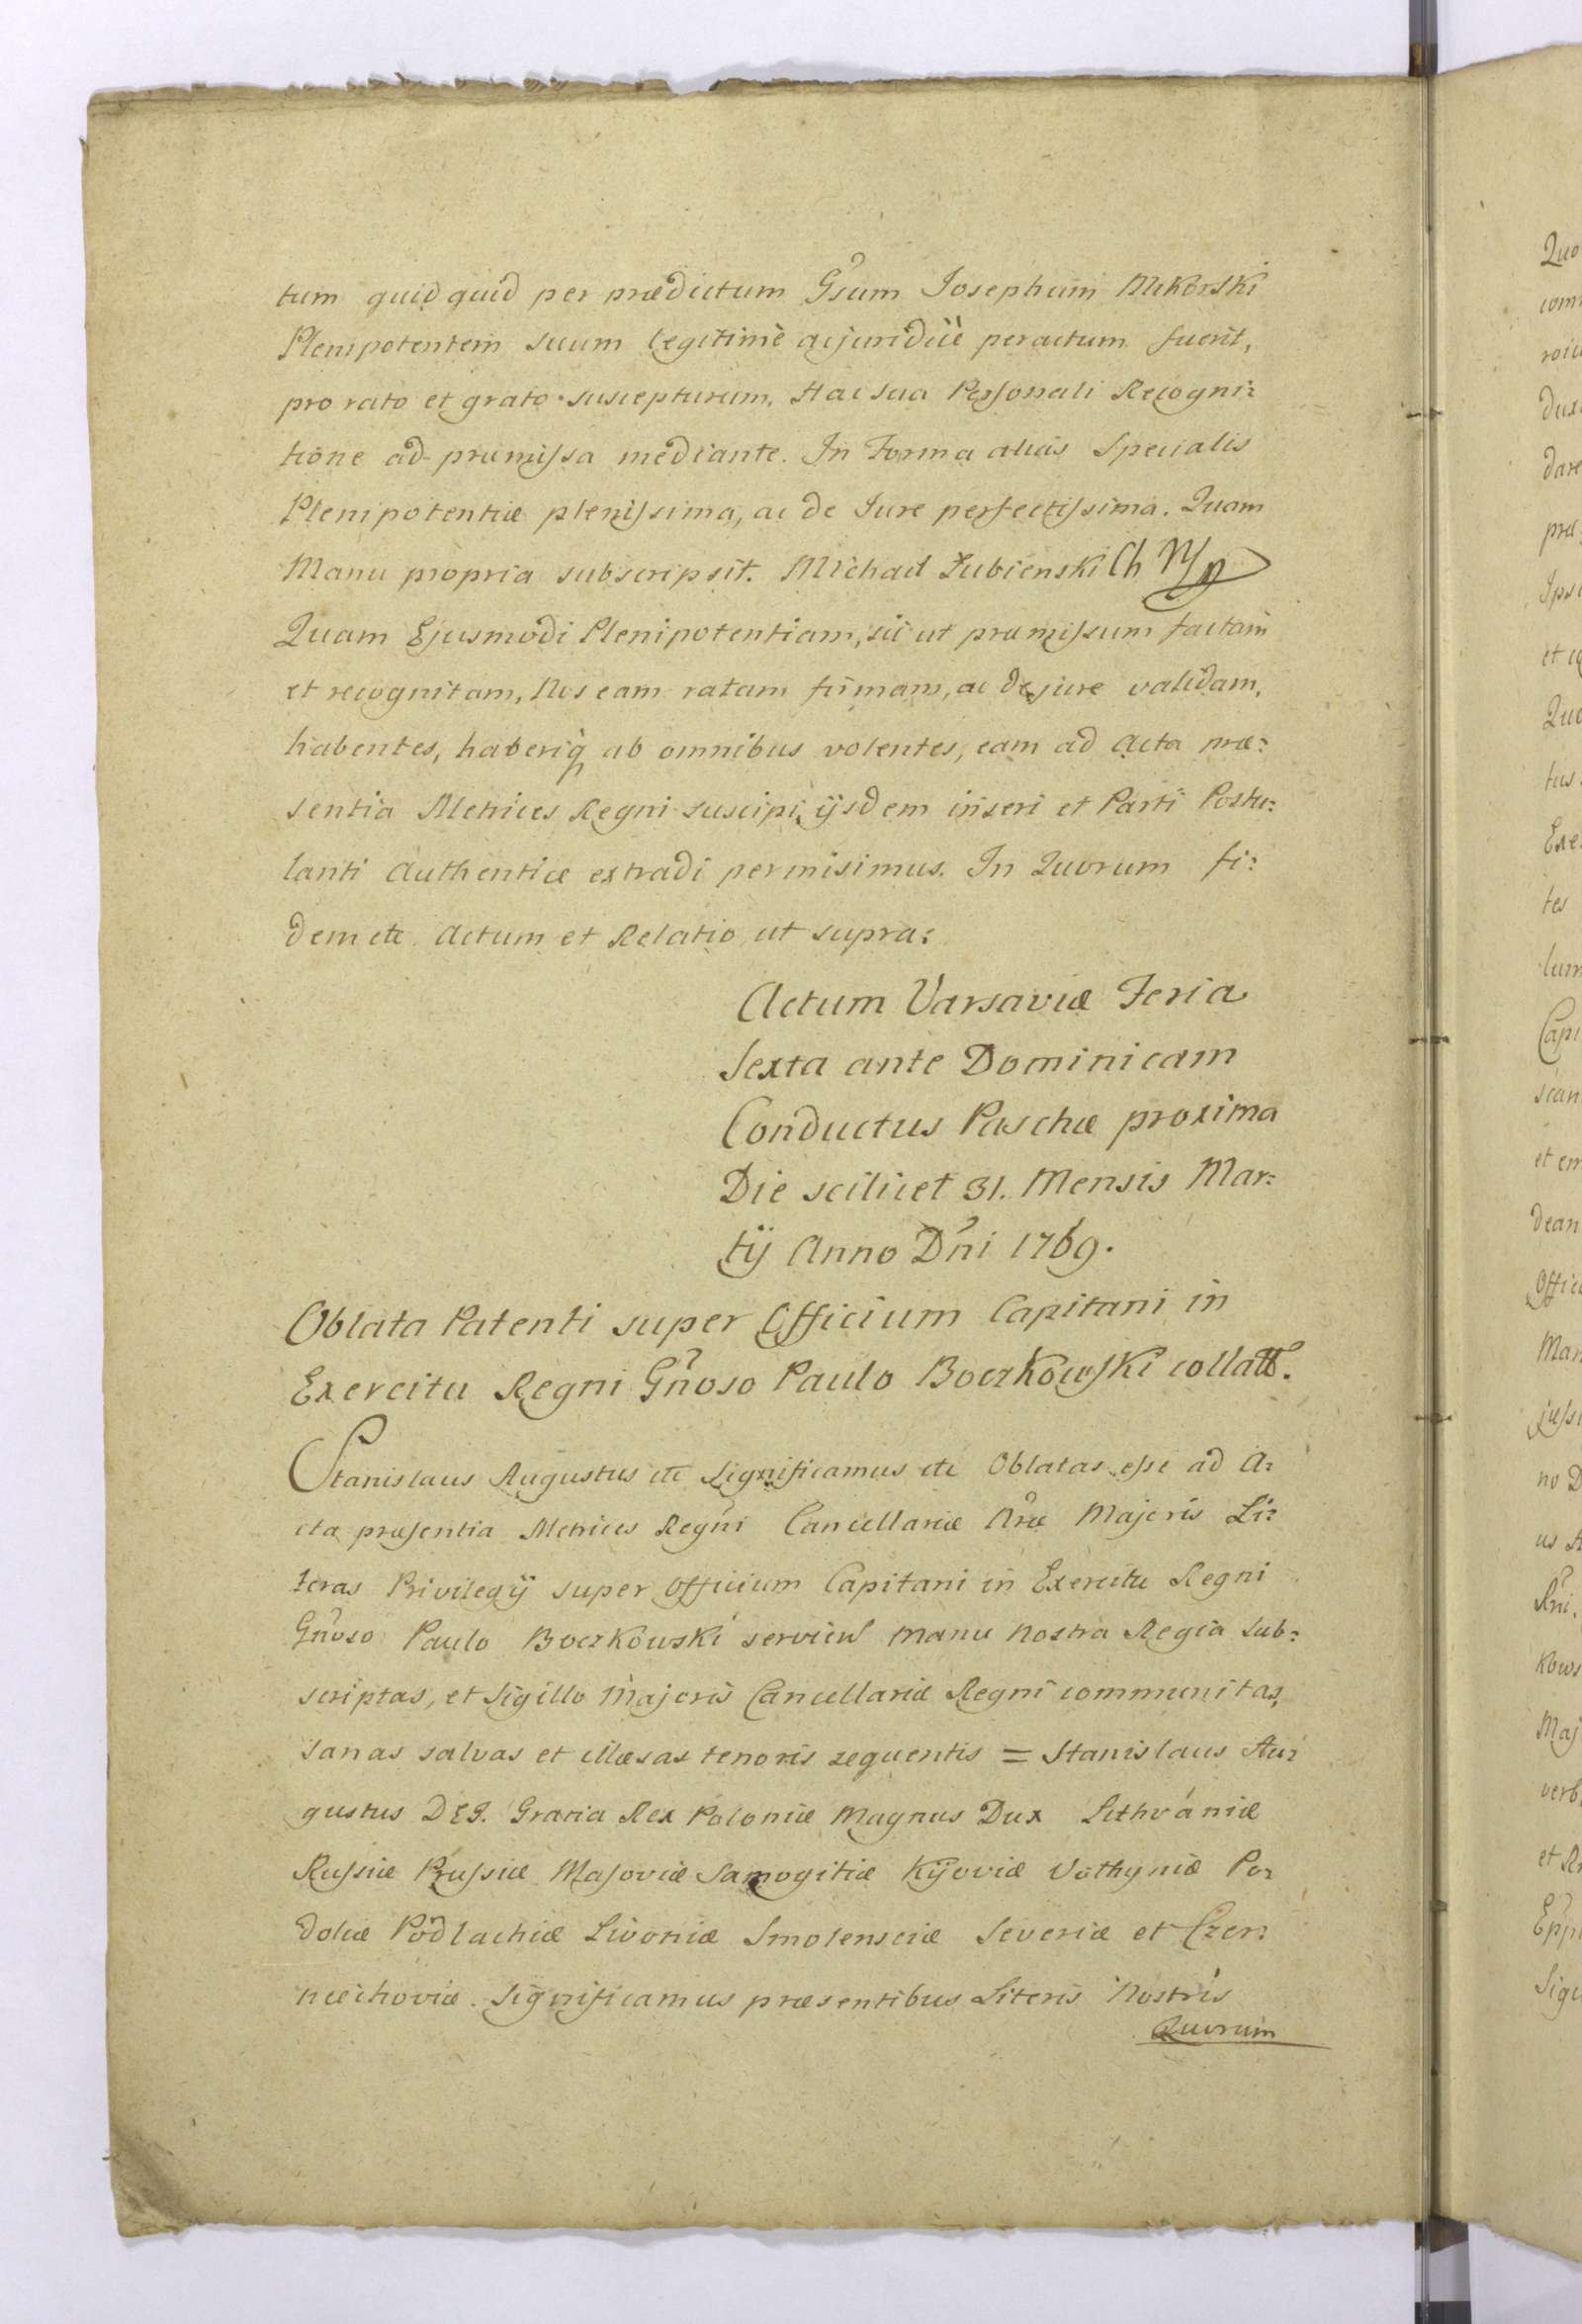 tum quid quid per prædictum Gsum Josephum Mikorski
Plenipotentem suum legitimè ac juridicè peractum fuerit,
pro rato et grato suscepturum. Hac sua Personali Recogni:
tione ad præmissa mediante. In Forma alias Specialis
Plenipotentiæ plenissima, ac de Jure perfectissima. Quam
Manu propria subscripsit. Michael Łubienski Ch
Quam Ejusmodi Plenipotentiam, sic ut præmissum factam
et recognitam, Nos eam ratam firmam, ac de jure validam,
habentes, haberiq̀ ab omnibus volentes, eam ad Acta præ:
sentia Metrices Regni suscipi, ijsdem inseri et Parti Postu:
lanti Authenticæ extradi permisimus. In Quorum fi:
dem etc Actum et Relatio ut supra:
Actum Varsaviæ Feria
Sexta ante Dominicam
Conductus Paschæ proxima
Die scilicet 31. Mensis Mar:
tij Anno Dni 1769.
Oblata Patenti super Officium Capitani in
Exercitu Regni Gnoso Paulo Boczkowski collatt.
Stanislaus Augustus etc Significamus etc Oblatas esse ad A:
cta præsentia Metrices Regni Cancellariæ Nræ Majoris Li:
teras Privilegij super Officium Capitani in Exercitu Regni
Gnoso Paulo Boczkowski serviens manu Nostra Regia sub:
scriptas, et Sigillo Majoris Cancellariæ Regni communitas,
sanas salvas et illæsas tenoris sequentis = Stanislaus Au:
gustus DEI. Gratia Rex Poloniæ Magnus Dux Lithvaniæ
Russiæ Prussiæ Masoviæ Samogitiæ Kijoviæ Volhyniæ Po:
doliæ Podlachiæ Livoniæ Smolensciæ Severiæ et Czer:
niechoviæ. Significamus præsentibus Literis Nostris
Quorum